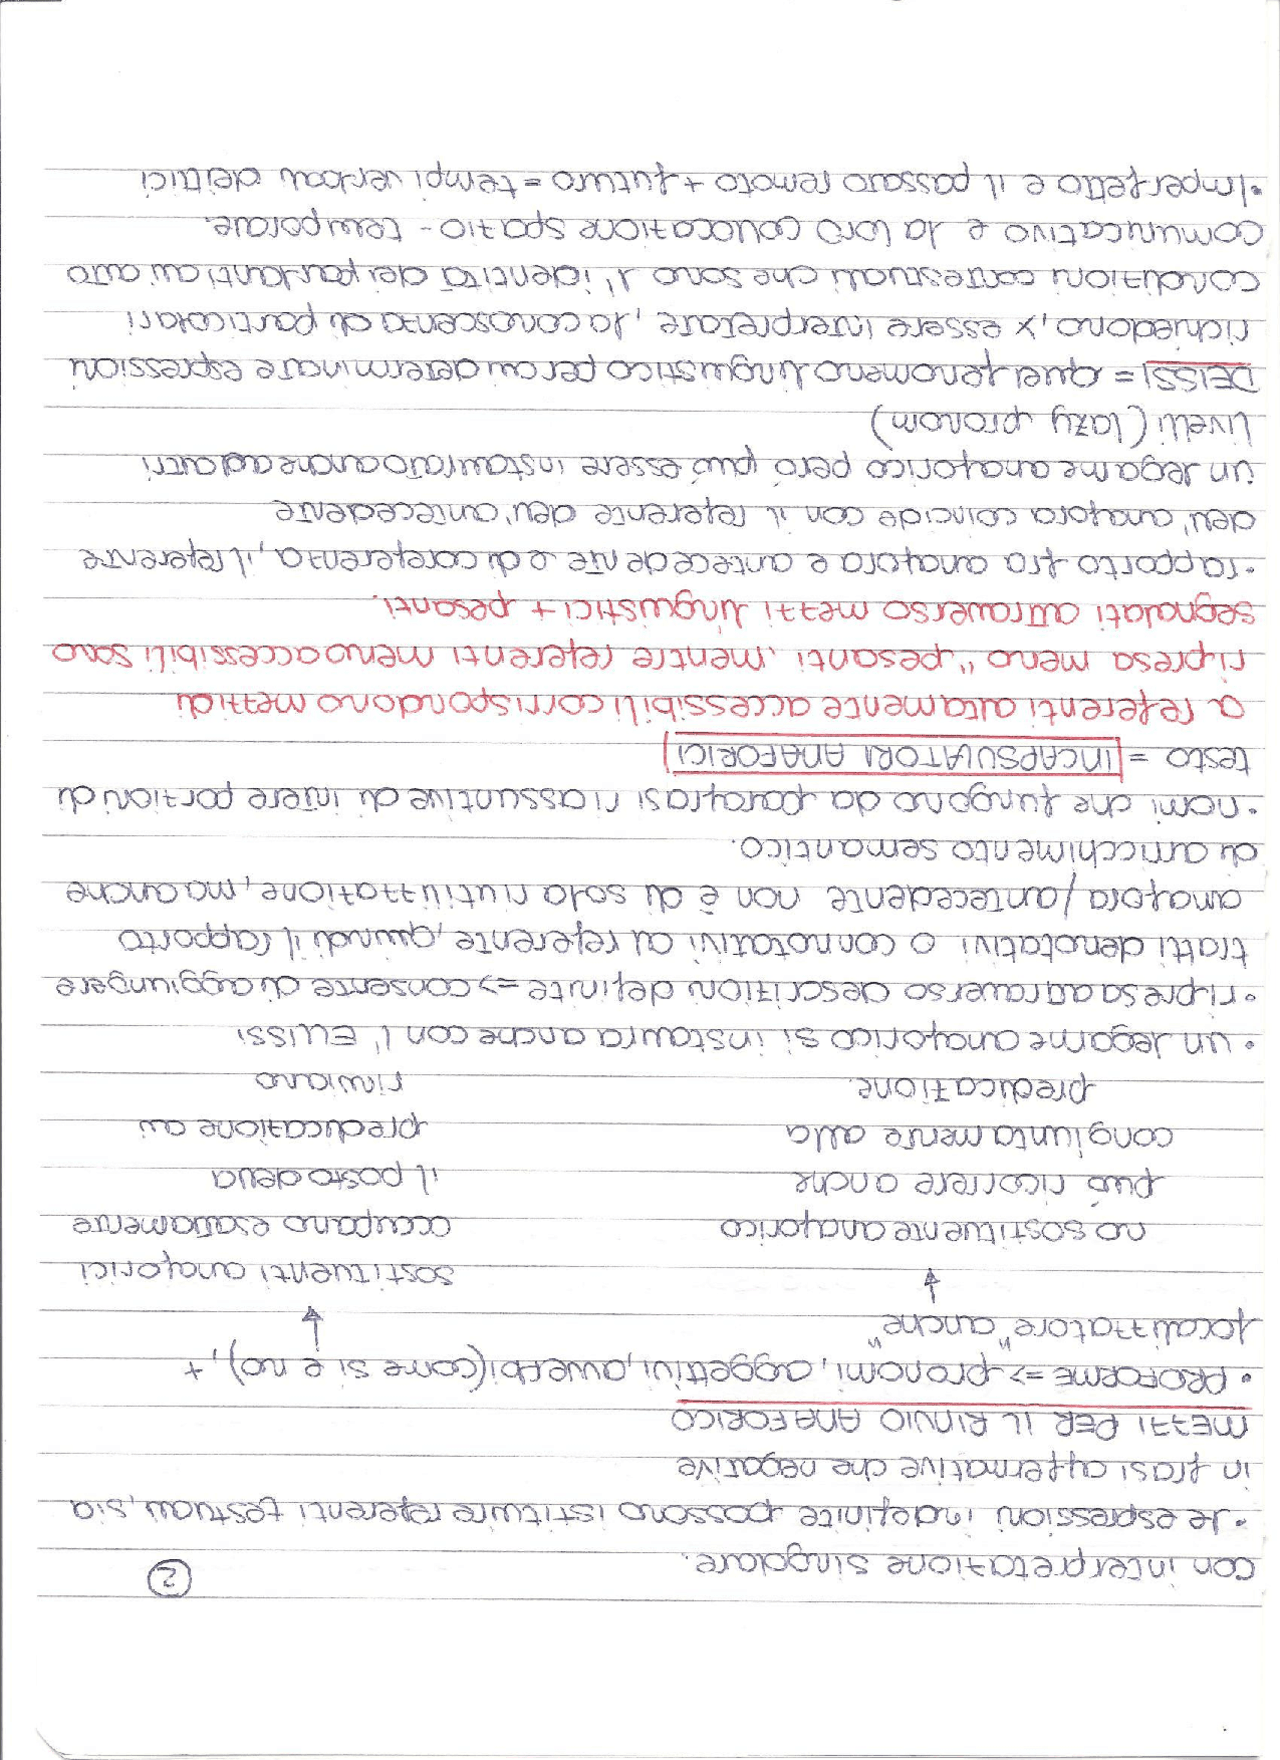 con interpretazione singolare.
②
• le espressioni indefinite possono istituire referenti testuali, sia
in frasi affermative che negative
MEZZI PER IL RINVIO ANAFORICO
• PROFORME => pronomi, aggettivi, avverbi (come si e no), +
focalizzatore "anche"
no sostituente anaforico
può ricorrere anche
congiuntamente alla
predicazione.
sostituenti anaforici
occupano esattamente
il posto della
predicazione cui
rinviano
• un legame anaforico si instaura anche con l'ELLISSI
• ripresa attraverso descrizioni definite => consente di aggiungere
tratti denotativi o connotativi al referente, quindi il rapporto
anafora/antecedente non è di sola riutilizzazione, ma anche
di arricchimento semantico.
• nomi che fungono da parafrasi riassuntive di intere porzioni di
testo = INCAPSULATORI ANAFORICI
a referenti altamente accessibili corrispondono mezzi di
ripresa meno "pesanti, mentre referenti meno accessibili sono
segnalati attraverso mezzi linguistici + pesanti.
• rapporto fra anafora e antecedente e di coreferenza, il referente
dell'anafora coincide con il referente dell'antecedente
un legame anaforico però può essere instaurato anche ad altri
livelli (lazy pronom)
DEISSI = quel fenomeno linguistico per cui determinate espressioni
richiedono, x essere interpretate, la conoscenza di particolari
condizioni contestuali che sono l'identità dei parlanti all'atto
comunicativo e la loro collocazione spazio-temporale.
• Imperfetto e il passato remoto + futuro = tempi verbali deittici